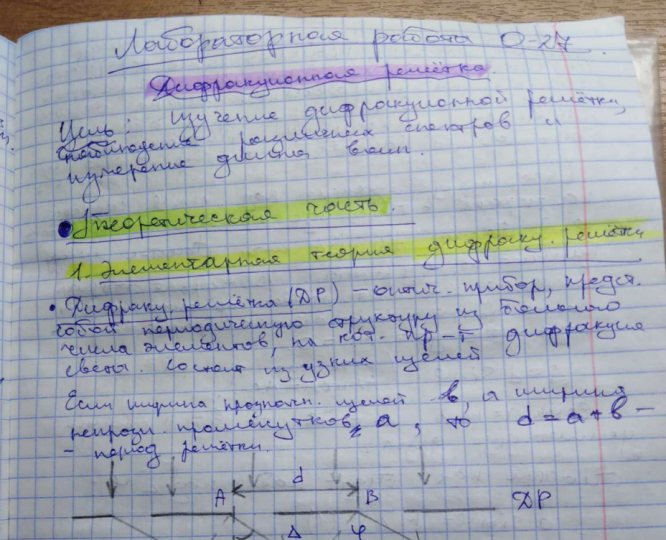 Лабораторная работа О-27.
Дифракционная решётка.
Цель: изучение дифракционной решётки,
наблюдение различных спектров и
измерение длины волн.
Теоретическая часть.
1. Элементарная теория дифракц. решётки
• Дифракц. решётка (ДР) – оптич. прибор, предст.
собой периодическую структуру из большого
числа элементов, на кот. пр-т дифракция
света. Состоит из узких щелей
Если ширина прозрачн. щелей b, а ширина
непрозр. промежутков a, то d = a + b –
– период решётки.
d
A B ДР
Δ φ